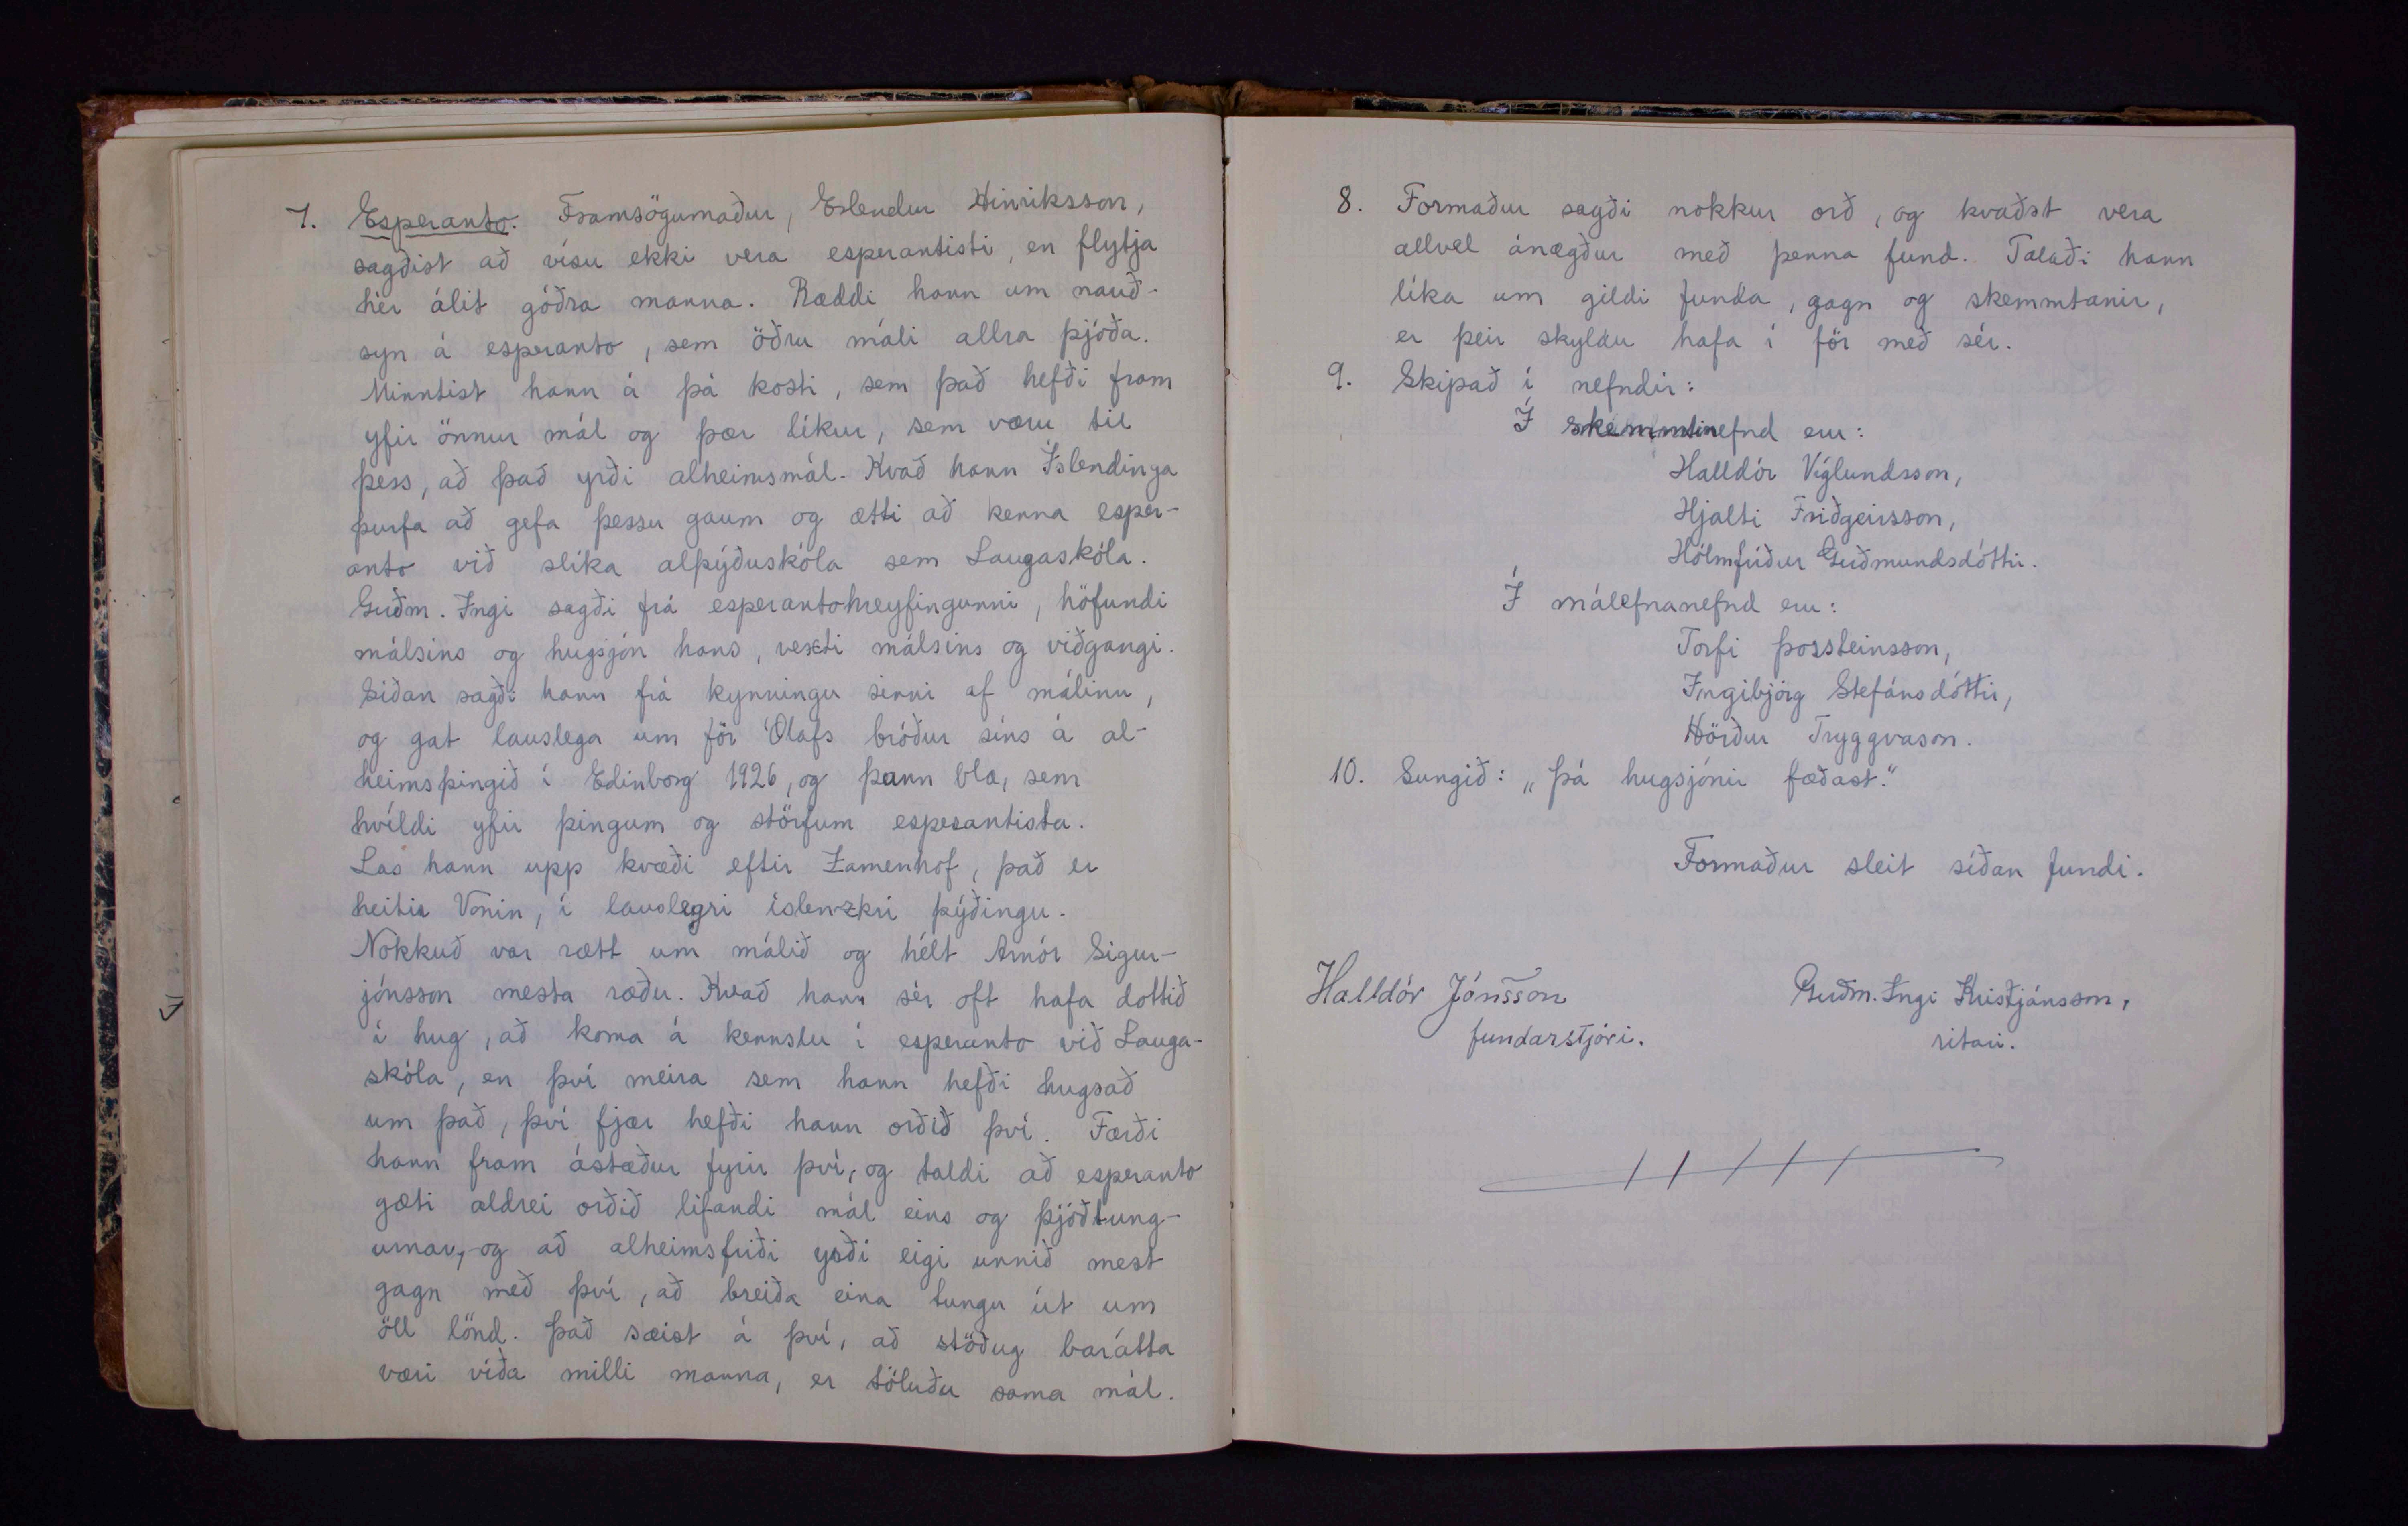 7. Esperanto. Framsögumaður, Erlendur Hinriksson,
sagðist að vísu ekki vera esperantisti, en flytja
hér álit góðra manna. Ræddi hann um nauð-
syn á esperanto, sem öðru máli allra þjóða.
Minntist hann á þá kosti, sem það hefði fram
yfir önnur mál og þær líkur, sem væru til
þess, að það yrði alheimsmál. Kvað hann Íslendinga
þurfa að gefa þessu gaum og ætti að kenna esper-
anto við slíka alþýðuskóla sem Laugaskóla.
Guðm. Ingi sagði frá esperantohreyfingunni, höfundi
málsins og hugsjón hans, vexti málsins og viðgangi.
Síðan sagði hann frá kynningu sinni af málinu,
og gat lauslega um för Ólafs bróður síns á al-
heimsþingið í Edinborg 1926, og þann blæ, sem
hvíldi yfir þingum og störfum esperantista.
Las hann upp kvæði eftir Zamenhof, það er
heitir Vonin, í lauslegri íslenzkri þýðingu.
Nokkuð var rætt um málið og hélt Arnór Sigur-
jónsson mesta ræðu. Kvað hann sér oft hafa dottið
í hug, að koma á kennslu í esperanto við Lauga-
skóla, en því meira sem hann hefði hugsað
um það, því fjær hefði hann orðið því. Færði
hann fram ástæður fyrir því, og taldi að esperanto
gæti aldrei orðið lifandi mál eins og þjóðtung-
urnar, og að alheimsfriði yrði eigi unnið mest
gagn með því, að breiða eina tungu út um
öll lönd. Það sæist á því, að stöðug barátta
væri víða milli manna, er töluðu sama mál.
8. Formaður sagði nokkur orð, og kvaðst vera
allvel ánægður með þenna fund. Talaði hann
líka um gildi funda, gagn og skemmtanir,
er þeir skyldu hafa í för með sér.
9. Skipað í nefndir:
Í skemmtinefnd eru:
Halldór Víglundsson,
Hjalti Friðgeirsson,
Hólmfríður Guðmundsdóttir.
Í málefnanefnd eru:
Torfi Þorsteinsson,
Ingibjörg Stefánsdóttir,
Hörður Tryggvason.
10. Sungið: „Þá hugsjónir fæðast."
Formaður sleit síðan fundi.
Halldór Jónsson Guðm. Ingi Kristjánsson,
fundarstjóri. ritari.